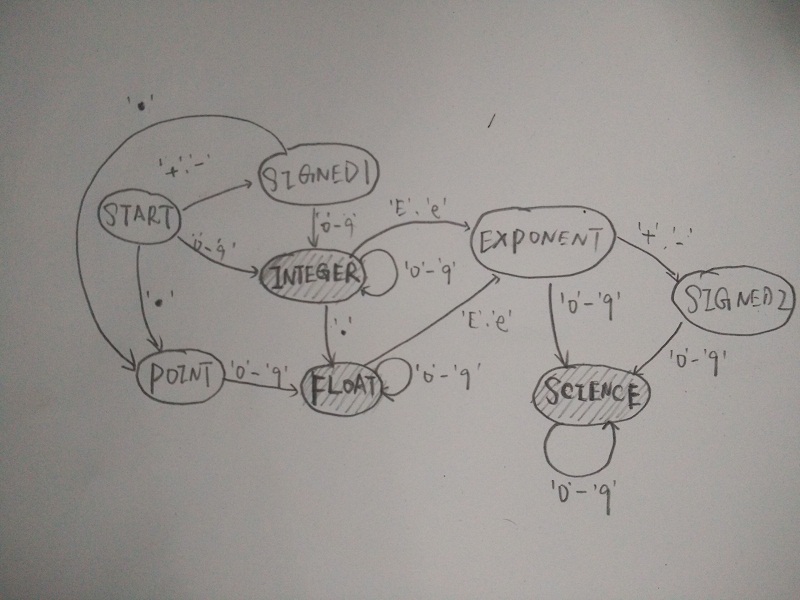 '.'
'+'.'-'
SIGNED1
START
'0-9'
'E'.'e'
'0-9'
EXPONENT
'+'.'-'
INTEGER
'0'-'9'
SIGNED2
'.'
'.'
'E'.'e'
'0'-'9'
'0'-'9'
POINT
'0'-'9'
FLOAT
'0'-'9'
SCIENCE
'0'-'9'